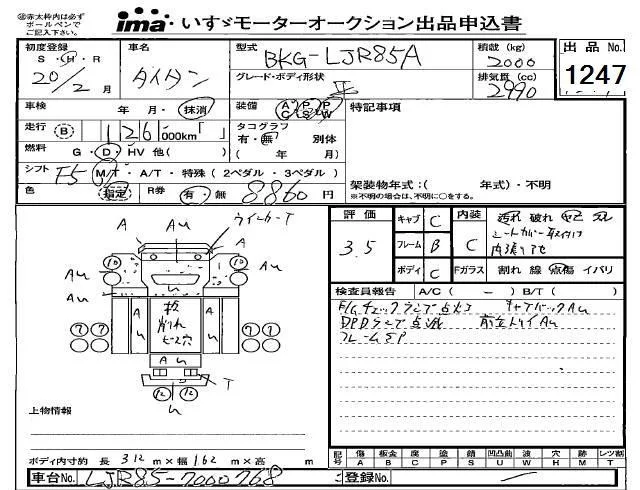 ※赤太枠内は必ず
ボールペンで
ご記入下さい。
ima いすゞモーターオークション出品申込書
初度登録 車名 型式 積載 (kg) 出品 No.
S・H・R 20/2月 タイタン BKG-LJR85A 2000
グレード・ボディ形状 平 排気量 (cc) 2990
1247
車検 年 月・抹消 装備 A C P S P W 特記事項
走行 B 126,000km「 」 タコグラフ 有・無 別体
燃料 G・D・HV 他( ) ( 年 月)
シフト F5 M/T・A/T・特殊 (2ペダル・3ペダル)
架装物年式:( 年式)・不明
※不明の場合は、不明に○をする。
色 指定 R券 有・無 8860円
評価 3.5 キャブ C 内装 C 汚れ 破れ
シートカバー取付け
フレーム B
ボディ C Fガラス 割れ 線 点傷 イバリ
検査員報告 A/C ( − ) B/T ( )
E/Gチェックランプ点灯 キャブバックAU
DPDランプ点滅
フレームSP
A AU ウインカーT
A A
10 10
AU AU
A A A
U U
板
削れ
ビス穴
7 7 7 7
A U
T
12 12
U
上物情報
ボディ内寸約 長 312 m×幅 1.62 m×高 m
記号 傷 A 板金 B 腐 C 塗 P 錆 S 凹凸曲 U 波 W 穴 H 跡 M レツ割 T
車台No. LJR85-7000768 登録No. −